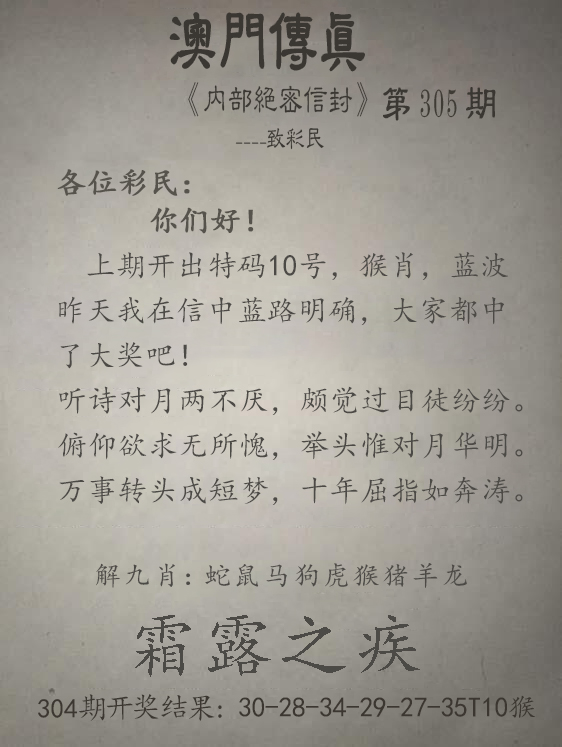 澳門傳眞
《内部絕密信封》第305期
----致彩民
各位彩民：
你们好！
上期开出特码10号，猴肖，蓝波
昨天我在信中蓝路明确，大家都中
了大奖吧！
听诗对月两不厌，颇觉过目徒纷纷。
俯仰欲求无所愧，举头惟对月华明。
万事转头成短梦，十年屈指如奔涛。
解九肖：蛇鼠马狗虎猴猪羊龙
霜露之疾
304期开奖结果：30-28-34-29-27-35T10猴